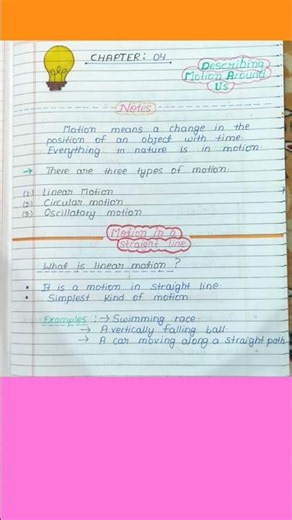 CHAPTER: 04
Describing
Motion Around
Us
Notes
Motion means a change in the
position of an object with time.
Everything in nature is in motion.
→ There are three types of motion.
(1) Linear Motion
(2) Circular motion
(3) Oscillatory motion
Motion in a
straight line
What is linear motion?
• It is a motion in straight line.
• Simplest kind of motion
Examples :→ Swimming race.
→ A vertically falling ball.
→ A car moving along a straight path.